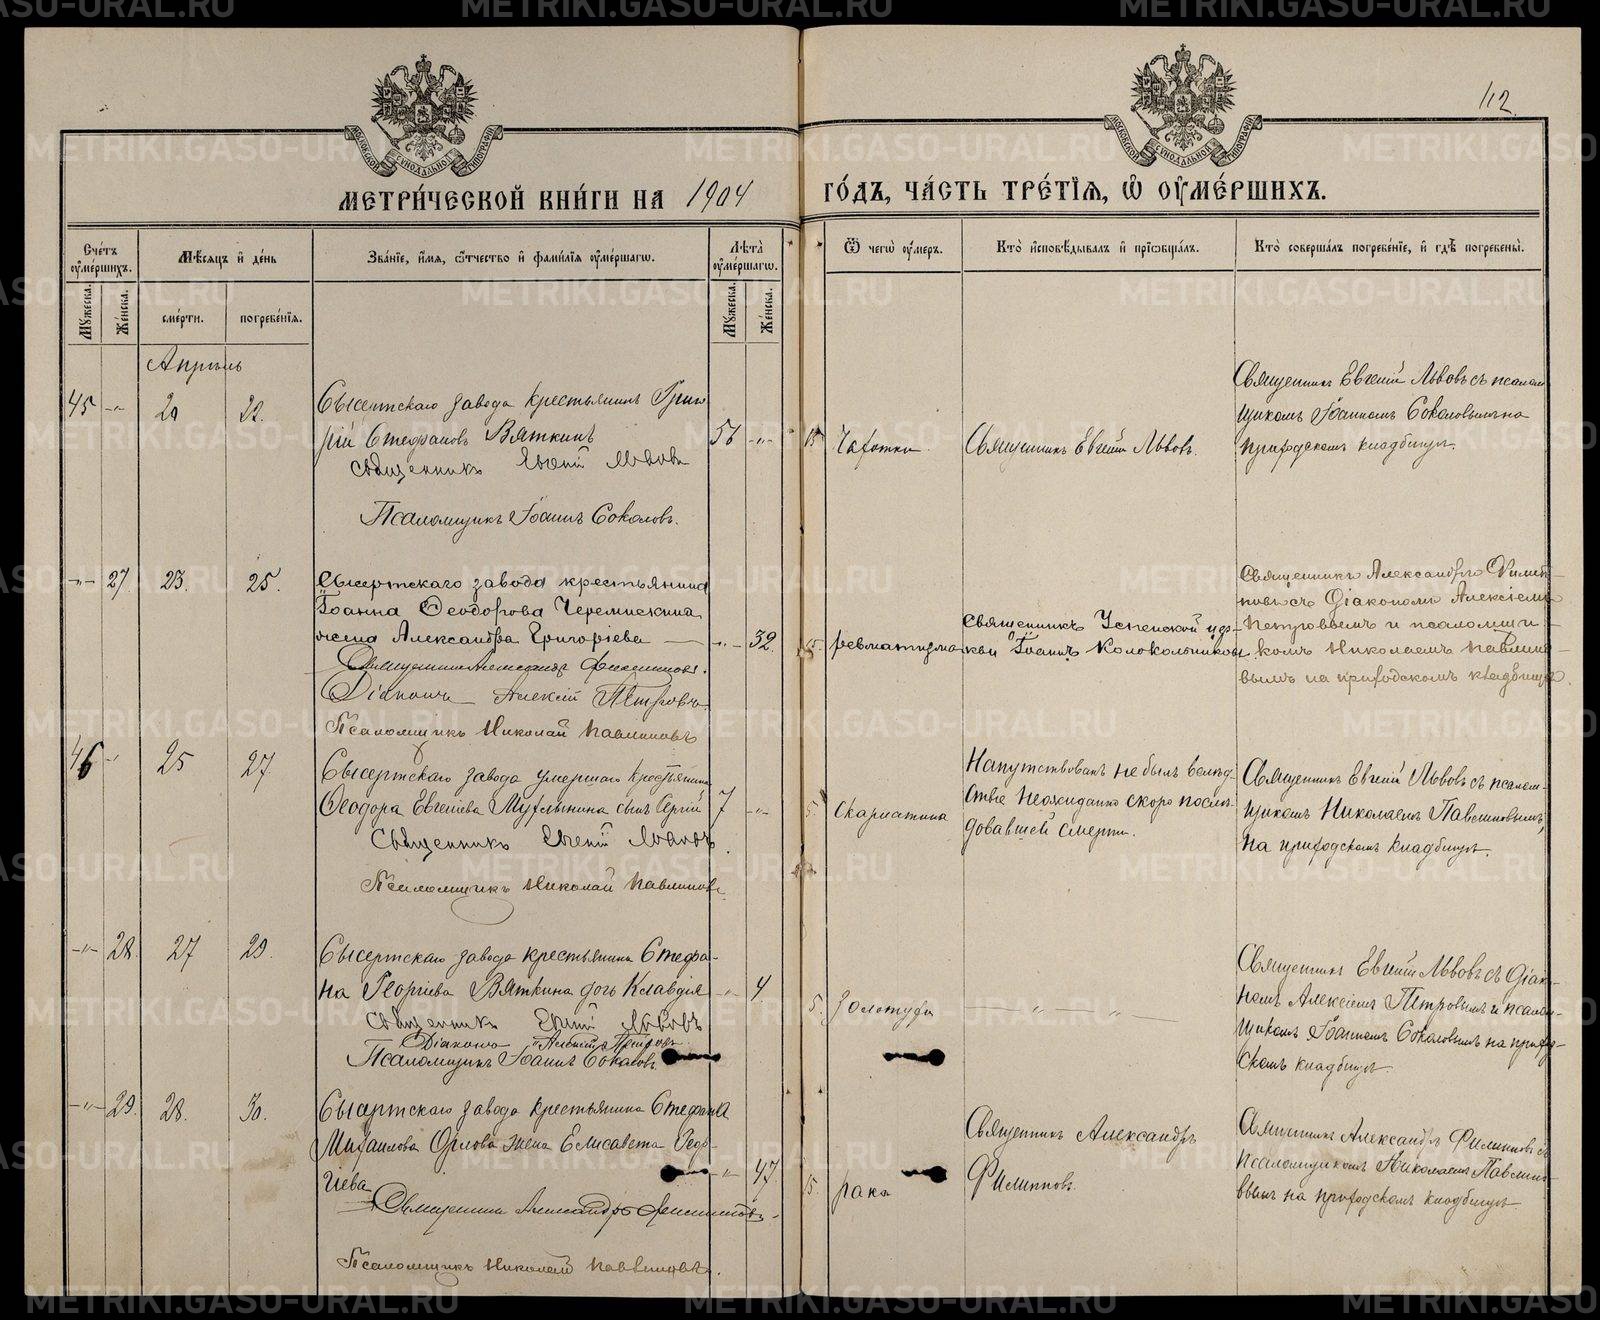 112
МЕТРИ́ЧЕСКОЙ КНИ́ГИ НА 1904 ГО́ДЪ, ЧА́СТЬ ТРЕ́ТІѦ, Ѽ ОУ҆МЕ́РШИХЪ.
МОСКОВСКОЙ СѴНОДАЛЬНОЙ ТИПОГРАФІИ
МОСКОВСКОЙ СѴНОДАЛЬНОЙ ТИПОГРАФІИ
Сче́тъ оу҆ме́ршихъ.
Мꙋ́жеска.
Же́нска.
Мѣ́сѧцъ и҆ де́нь
сме́рти.
погребе́нїѧ.
Зва́нїе, и҆́мѧ, ѻ҆́тчество и҆ фами́лїѧ оу҆ме́ршагѡ.
Лѣ̀та оу҆ме́ршагѡ.
Мꙋ́жеска.
Же́нска.
Ѿ чегѡ̀ оу҆́меръ.
Кто̀ и҆сповѣ́дывалъ и҆ прїѡбща́лъ.
Кто̀ соверша́лъ погребе́нїе, и҆ гдѣ̀ погребены̀.
Апрѣль
45 -"- 20 22.
Сысертскаго завода крестьянинъ Григо
рій Стефановъ Вяткинъ
56 -"-
Священникъ Евгеній Львовъ
Псаломщикъ Іоаннъ Соколовъ.
Чахотки.
Священникъ Евгеній Львовъ.
Священникъ Евгеній Львовъ съ псалом
щикомъ Іоанномъ Соколовымъ на
приходскомъ кладбищѣ.
-"- 27. 23. 25.
Сысертскаго завода крестьянина
Іоанна Ѳеодорова Черемискина
жена Александра Григоріева —
-"- 32.
Священникъ Александръ Филипповъ.
Діаконъ Алексій Петровъ.
Псаломщикъ Николай Павлиновъ
ревматизма
Священникъ Успенской цер-
кви Іоаннъ Колокольниковъ
Священникъ Александръ Филип-
повъ съ Діакономъ Алексіемъ
Петровымъ и псаломщи-
комъ Николаемъ Павлино-
вымъ на приходскомъ кладбищѣ.
46 -"- 25 27.
Сысертскаго завода умершаго крестьянина
Ѳеодора Евгеніева Мурзынина сынъ Сергій
7 -"-
Священникъ Евгеній Львовъ.
Псаломщикъ Николай Павлиновъ.
Скарлатина
Напутствованъ не былъ вслѣд-
ствіе неожиданно скоро послѣ-
довавшей смерти.
Священникъ Евгеній Львовъ съ псалом-
щикомъ Николаемъ Павлиновымъ,
на приходскомъ кладбищѣ.
-"- 28. 27 29.
Сысертскаго завода крестьянина Стефа-
на Георгіева Вяткина дочь Клавдія
-"- 4
Священникъ Евгеній Львовъ
Діаконъ Алексій Петровъ
Псаломщикъ Іоаннъ Соколовъ.
Золотухи
— " — " —
Священникъ Евгеній Львовъ съ Діако-
номъ Алексіемъ Петровымъ и псалом-
щикомъ Іоанномъ Соколовымъ на приход-
скомъ кладбищѣ.
-"- 29. 28. 30.
Сысертскаго завода крестьянина Стефана
Михаилова Орлова жена Елисавета Геор-
гіева
-"- 47
Священникъ Александръ Филипповъ.
Псаломщикъ Николай Павлиновъ.
рака
Священникъ Александръ
Филипповъ.
Священникъ Александръ Филипповъ съ
псаломщикомъ Николаемъ Павлино-
вымъ на приходскомъ кладбищѣ.
METRIKI.GASO-URAL.RU